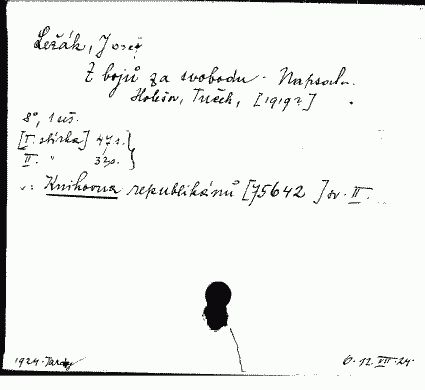 Ležák, Josef
Z bojů za svobodu. Napsal.
Holešov, Tuček, [1919?]
8°, 1 sš.
[I. sbírka] 47 s.
II. " 32 s.
v: Knihovna republikánů [75642] sv. II.
1924.
6. 12. VIII. 24.